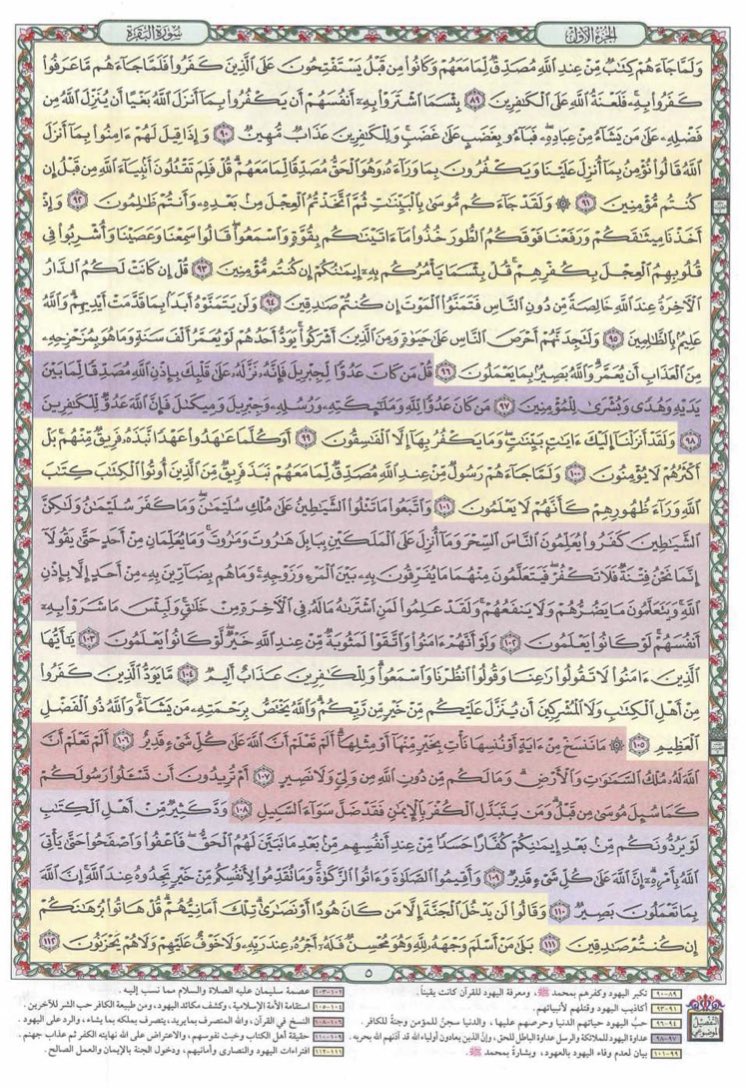 الجزء الأول
سورة البقرة
وَلَمَّا جَآءَهُمْ كِتَٰبٌ مِّنْ عِندِ ٱللَّهِ مُصَدِّقٌ لِّمَا مَعَهُمْ وَكَانُوا۟ مِن قَبْلُ يَسْتَفْتِحُونَ عَلَى ٱلَّذِينَ كَفَرُوا۟ فَلَمَّا جَآءَهُم مَّا عَرَفُوا۟
كَفَرُوا۟ بِهِۦ ۚ فَلَعْنَةُ ٱللَّهِ عَلَى ٱلْكَٰفِرِينَ ٨٩ بِئْسَمَا ٱشْتَرَوْا۟ بِهِۦٓ أَنفُسَهُمْ أَن يَكْفُرُوا۟ بِمَآ أَنزَلَ ٱللَّهُ بَغْيًا أَن يُنَزِّلَ ٱللَّهُ مِن
فَضْلِهِۦ عَلَىٰ مَن يَشَآءُ مِنْ عِبَادِهِۦ ۖ فَبَآءُو بِغَضَبٍ عَلَىٰ غَضَبٍ ۚ وَلِلْكَٰفِرِينَ عَذَابٌ مُّهِينٌ ٩٠ وَإِذَا قِيلَ لَهُمْ ءَامِنُوا۟ بِمَآ أَنزَلَ
ٱللَّهُ قَالُوا۟ نُؤْمِنُ بِمَآ أُنزِلَ عَلَيْنَا وَيَكْفُرُونَ بِمَا وَرَآءَهُۥ وَهُوَ ٱلْحَقُّ مُصَدِّقًا لِّمَا مَعَهُمْ ۗ قُلْ فَلِمَ تَقْتُلُونَ أَنۢبِيَآءَ ٱللَّهِ مِن قَبْلُ إِن
كُنتُم مُّؤْمِنِينَ ٩١ ۞ وَلَقَدْ جَآءَكُم مُّوسَىٰ بِٱلْبَيِّنَٰتِ ثُمَّ ٱتَّخَذْتُمُ ٱلْعِجْلَ مِنۢ بَعْدِهِۦ وَأَنتُمْ ظَٰلِمُونَ ٩٢ وَإِذْ
أَخَذْنَا مِيثَٰقَكُمْ وَرَفَعْنَا فَوْقَكُمُ ٱلطُّورَ خُذُوا۟ مَآ ءَاتَيْنَٰكُم بِقُوَّةٍ وَٱسْمَعُوا۟ ۖ قَالُوا۟ سَمِعْنَا وَعَصَيْنَا وَأُشْرِبُوا۟ فِى
قُلُوبِهِمُ ٱلْعِجْلَ بِكُفْرِهِمْ ۚ قُلْ بِئْسَمَا يَأْمُرُكُم بِهِۦٓ إِيمَٰنُكُمْ إِن كُنتُم مُّؤْمِنِينَ ٩٣ قُلْ إِن كَانَتْ لَكُمُ ٱلدَّارُ
ٱلْءَاخِرَةُ عِندَ ٱللَّهِ خَالِصَةً مِّن دُونِ ٱلنَّاسِ فَتَمَنَّوُا۟ ٱلْمَوْتَ إِن كُنتُمْ صَٰدِقِينَ ٩٤ وَلَن يَتَمَنَّوْهُ أَبَدًۢا بِمَا قَدَّمَتْ أَيْدِيهِمْ ۗ وَٱللَّهُ
عَلِيمٌۢ بِٱلظَّٰلِمِينَ ٩٥ وَلَتَجِدَنَّهُمْ أَحْرَصَ ٱلنَّاسِ عَلَىٰ حَيَوٰةٍ وَمِنَ ٱلَّذِينَ أَشْرَكُوا۟ ۚ يَوَدُّ أَحَدُهُمْ لَوْ يُعَمَّرُ أَلْفَ سَنَةٍ وَمَا هُوَ بِمُزَحْزِحِهِۦ
مِنَ ٱلْعَذَابِ أَن يُعَمَّرَ ۗ وَٱللَّهُ بَصِيرٌۢ بِمَا يَعْمَلُونَ ٩٦ قُلْ مَن كَانَ عَدُوًّا لِّجِبْرِيلَ فَإِنَّهُۥ نَزَّلَهُۥ عَلَىٰ قَلْبِكَ بِإِذْنِ ٱللَّهِ مُصَدِّقًا لِّمَا بَيْنَ
يَدَيْهِ وَهُدًى وَبُشْرَىٰ لِلْمُؤْمِنِينَ ٩٧ مَن كَانَ عَدُوًّا لِّلَّهِ وَمَلَٰٓئِكَتِهِۦ وَرُسُلِهِۦ وَجِبْرِيلَ وَمِيكَىٰلَ فَإِنَّ ٱللَّهَ عَدُوٌّ لِّلْكَٰفِرِينَ
٩٨ وَلَقَدْ أَنزَلْنَآ إِلَيْكَ ءَايَٰتٍۭ بَيِّنَٰتٍ ۖ وَمَا يَكْفُرُ بِهَآ إِلَّا ٱلْفَٰسِقُونَ ٩٩ أَوَكُلَّمَا عَٰهَدُوا۟ عَهْدًا نَّبَذَهُۥ فَرِيقٌ مِّنْهُم ۚ بَلْ
أَكْثَرُهُمْ لَا يُؤْمِنُونَ ١٠٠ وَلَمَّا جَآءَهُمْ رَسُولٌ مِّنْ عِندِ ٱللَّهِ مُصَدِّقٌ لِّمَا مَعَهُمْ نَبَذَ فَرِيقٌ مِّنَ ٱلَّذِينَ أُوتُوا۟ ٱلْكِتَٰبَ كِتَٰبَ
ٱللَّهِ وَرَآءَ ظُهُورِهِمْ كَأَنَّهُمْ لَا يَعْلَمُونَ ١٠١ وَٱتَّبَعُوا۟ مَا تَتْلُوا۟ ٱلشَّيَٰطِينُ عَلَىٰ مُلْكِ سُلَيْمَٰنَ ۖ وَمَا كَفَرَ سُلَيْمَٰنُ وَلَٰكِنَّ
ٱلشَّيَٰطِينَ كَفَرُوا۟ يُعَلِّمُونَ ٱلنَّاسَ ٱلسِّحْرَ وَمَآ أُنزِلَ عَلَى ٱلْمَلَكَيْنِ بِبَابِلَ هَٰرُوتَ وَمَٰرُوتَ ۚ وَمَا يُعَلِّمَانِ مِنْ أَحَدٍ حَتَّىٰ يَقُولَآ
إِنَّمَا نَحْنُ فِتْنَةٌ فَلَا تَكْفُرْ ۖ فَيَتَعَلَّمُونَ مِنْهُمَا مَا يُفَرِّقُونَ بِهِۦ بَيْنَ ٱلْمَرْءِ وَزَوْجِهِۦ ۚ وَمَا هُم بِضَآرِّينَ بِهِۦ مِنْ أَحَدٍ إِلَّا بِإِذْنِ
ٱللَّهِ ۚ وَيَتَعَلَّمُونَ مَا يَضُرُّهُمْ وَلَا يَنفَعُهُمْ ۚ وَلَقَدْ عَلِمُوا۟ لَمَنِ ٱشْتَرَىٰهُ مَا لَهُۥ فِى ٱلْءَاخِرَةِ مِنْ خَلَٰقٍ ۚ وَلَبِئْسَ مَا شَرَوْا۟ بِهِۦٓ
أَنفُسَهُمْ ۚ لَوْ كَانُوا۟ يَعْلَمُونَ ١٠٢ وَلَوْ أَنَّهُمْ ءَامَنُوا۟ وَٱتَّقَوْا۟ لَمَثُوبَةٌ مِّنْ عِندِ ٱللَّهِ خَيْرٌ ۖ لَّوْ كَانُوا۟ يَعْلَمُونَ ١٠٣ يَٰٓأَيُّهَا
ٱلَّذِينَ ءَامَنُوا۟ لَا تَقُولُوا۟ رَٰعِنَا وَقُولُوا۟ ٱنظُرْنَا وَٱسْمَعُوا۟ ۗ وَلِلْكَٰفِرِينَ عَذَابٌ أَلِيمٌ ١٠٤ مَّا يَوَدُّ ٱلَّذِينَ كَفَرُوا۟
مِنْ أَهْلِ ٱلْكِتَٰبِ وَلَا ٱلْمُشْرِكِينَ أَن يُنَزَّلَ عَلَيْكُم مِّنْ خَيْرٍ مِّن رَّبِّكُمْ ۗ وَٱللَّهُ يَخْتَصُّ بِرَحْمَتِهِۦ مَن يَشَآءُ ۚ وَٱللَّهُ ذُو ٱلْفَضْلِ
ٱلْعَظِيمِ ١٠٥ ۞ مَا نَنسَخْ مِنْ ءَايَةٍ أَوْ نُنسِهَا نَأْتِ بِخَيْرٍ مِّنْهَآ أَوْ مِثْلِهَآ ۗ أَلَمْ تَعْلَمْ أَنَّ ٱللَّهَ عَلَىٰ كُلِّ شَىْءٍ قَدِيرٌ ١٠٦ أَلَمْ تَعْلَمْ أَنَّ
ٱللَّهَ لَهُۥ مُلْكُ ٱلسَّمَٰوَٰتِ وَٱلْأَرْضِ ۗ وَمَا لَكُم مِّن دُونِ ٱللَّهِ مِن وَلِىٍّ وَلَا نَصِيرٍ ١٠٧ أَمْ تُرِيدُونَ أَن تَسْـَٔلُوا۟ رَسُولَكُمْ
كَمَا سُئِلَ مُوسَىٰ مِن قَبْلُ ۗ وَمَن يَتَبَدَّلِ ٱلْكُفْرَ بِٱلْإِيمَٰنِ فَقَدْ ضَلَّ سَوَآءَ ٱلسَّبِيلِ ١٠٨ وَدَّ كَثِيرٌ مِّنْ أَهْلِ ٱلْكِتَٰبِ
لَوْ يَرُدُّونَكُم مِّنۢ بَعْدِ إِيمَٰنِكُمْ كُفَّارًا حَسَدًا مِّنْ عِندِ أَنفُسِهِم مِّنۢ بَعْدِ مَا تَبَيَّنَ لَهُمُ ٱلْحَقُّ ۖ فَٱعْفُوا۟ وَٱصْفَحُوا۟ حَتَّىٰ يَأْتِىَ
ٱللَّهُ بِأَمْرِهِۦٓ ۗ إِنَّ ٱللَّهَ عَلَىٰ كُلِّ شَىْءٍ قَدِيرٌ ١٠٩ وَأَقِيمُوا۟ ٱلصَّلَوٰةَ وَءَاتُوا۟ ٱلزَّكَوٰةَ ۚ وَمَا تُقَدِّمُوا۟ لِأَنفُسِكُم مِّنْ خَيْرٍ تَجِدُوهُ عِندَ ٱللَّهِ ۗ إِنَّ ٱللَّهَ
بِمَا تَعْمَلُونَ بَصِيرٌ ١١٠ وَقَالُوا۟ لَن يَدْخُلَ ٱلْجَنَّةَ إِلَّا مَن كَانَ هُودًا أَوْ نَصَٰرَىٰ ۗ تِلْكَ أَمَانِيُّهُمْ ۗ قُلْ هَاتُوا۟ بُرْهَٰنَكُمْ
إِن كُنتُمْ صَٰدِقِينَ ١١١ بَلَىٰ مَنْ أَسْلَمَ وَجْهَهُۥ لِلَّهِ وَهُوَ مُحْسِنٌ فَلَهُۥٓ أَجْرُهُۥ عِندَ رَبِّهِۦ وَلَا خَوْفٌ عَلَيْهِمْ وَلَا هُمْ يَحْزَنُونَ ١١٢
٥
التفصيل الموضوعي
٨٩-٩٠ تكبر اليهود وكفرهم بمحمد ﷺ، ومعرفة اليهود للقرآن كانت يقيناً.
٩١-٩٣ أكاذيب اليهود وقتلهم لأنبيائهم.
٩٤-٩٦ حبّ اليهود حياتهم الدنيا وحرصهم عليها، والدنيا سجنٌ للمؤمن وجنةٌ للكافر.
٩٧-٩٨ عداوة اليهود للملائكة والرسل عداوة الباطل للحق، وإنّ الذين يعادون أولياء الله قد آذنهم الله بحربه.
٩٩-١٠١ بيان لعدم وفاء اليهود بالعهود، وبشارةٌ بمحمد ﷺ.
١٠٢-١٠٣ عصمة سليمان عليه الصلاة والسلام مما نسب إليه.
١٠٤-١٠٥ استقامة الأمة الإسلامية، وكشف مكائد اليهود، ومن طبيعة الكافر حب الشر للآخرين.
١٠٦-١٠٨ النسخ في القرآن، والله المتصرف بما يريد، يتصرف بملكه بما يشاء، والرد على اليهود.
١٠٩-١١٠ حقيقة أهل الكتاب وخبث نفوسهم، والاعتراض على الله نهايته الكفر ثم عذاب جهنم.
١١١-١١٢ افتراءات اليهود والنصارى وأمانيهم، ودخول الجنة بالإيمان والعمل الصالح.